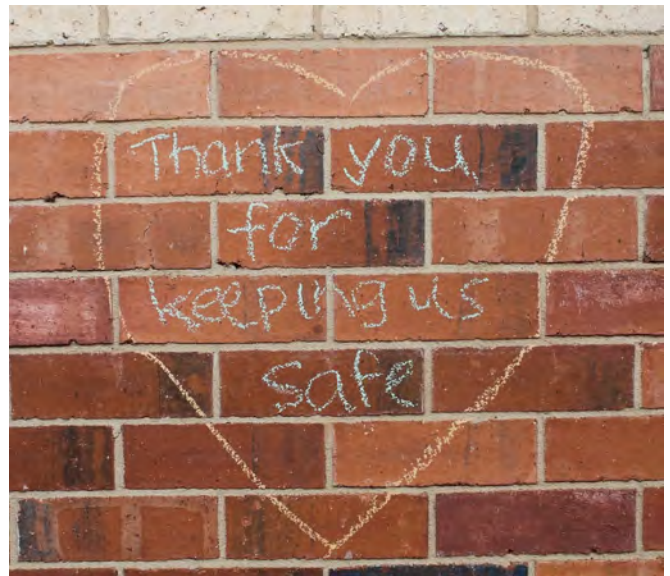 Thank you
for
keeping us
safe